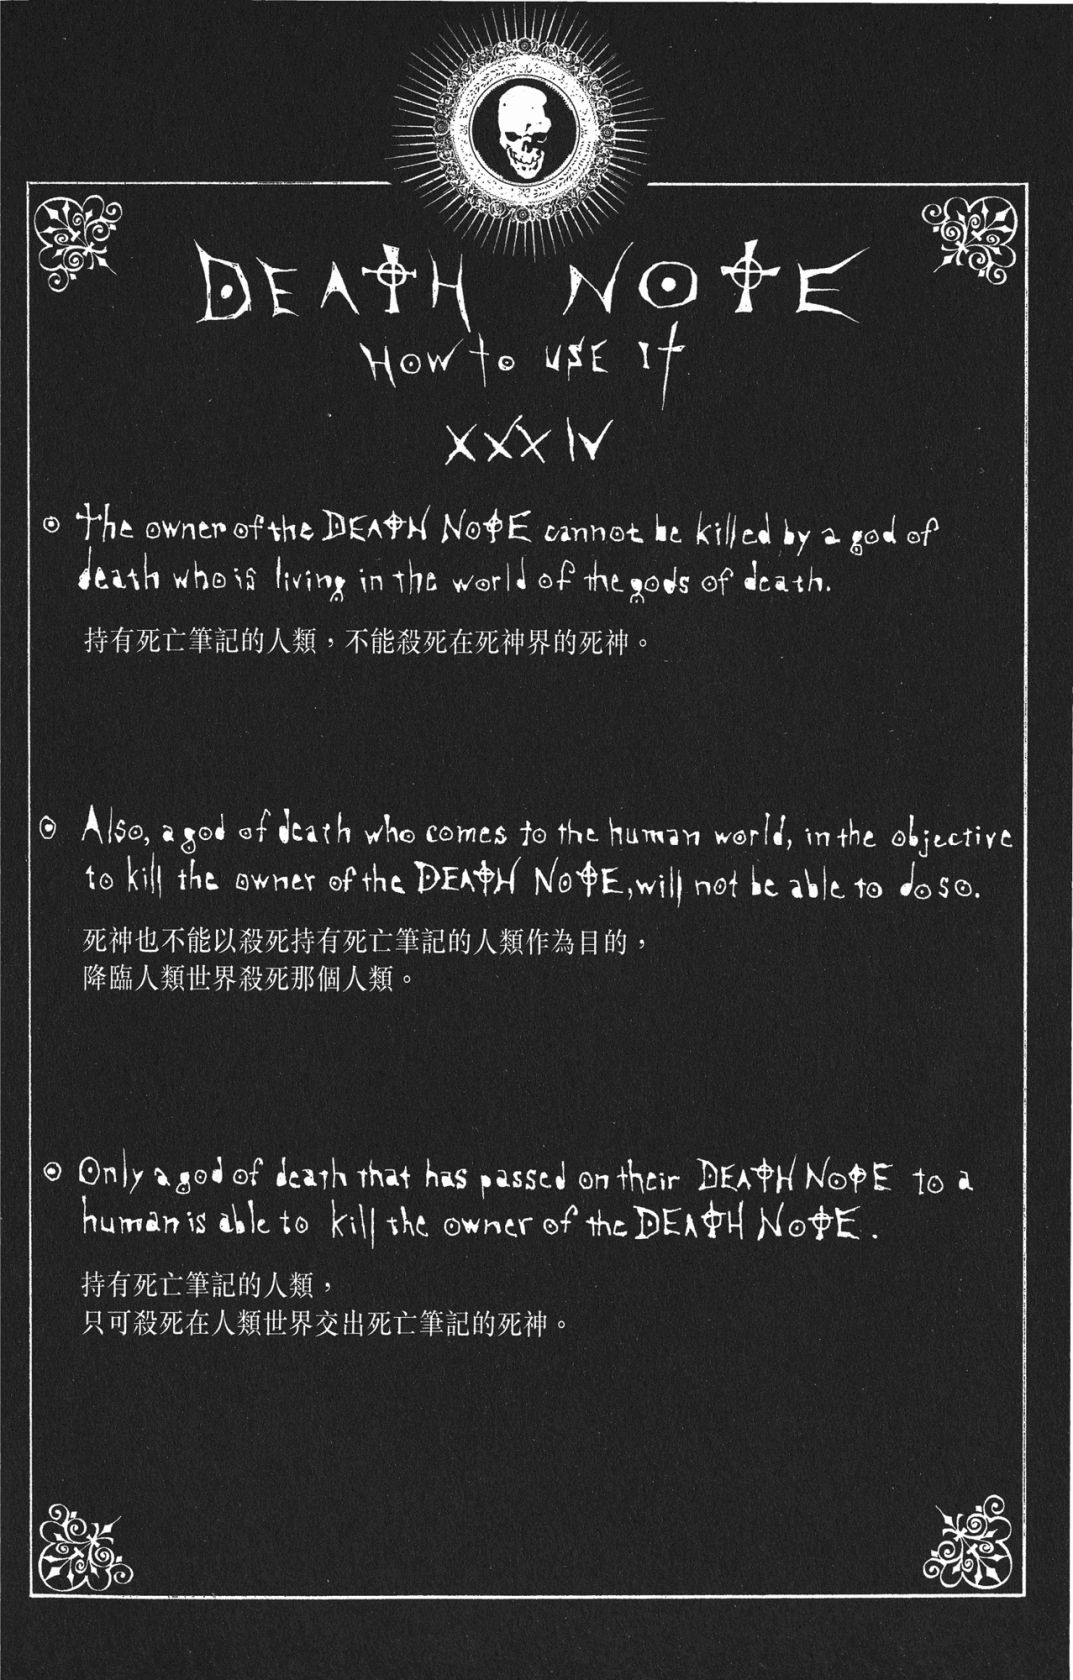 DEATH NOTE
HOW to USE It
XXXIV
The owner of the DEATH NOTE cannot be killed by a god of
death who is living in the world of the gods of death.
持有死亡筆記的人類，不能殺死在死神界的死神。
Also, a god of death who comes to the human world, in the objective
to kill the owner of the DEATH NOTE, will not be able to do so.
死神也不能以殺死持有死亡筆記的人類作為目的，
降臨人類世界殺死那個人類。
Only a god of death that has passed on their DEATH NOTE to a
human is able to kill the owner of the DEATH NOTE.
持有死亡筆記的人類，
只可殺死在人類世界交出死亡筆記的死神。